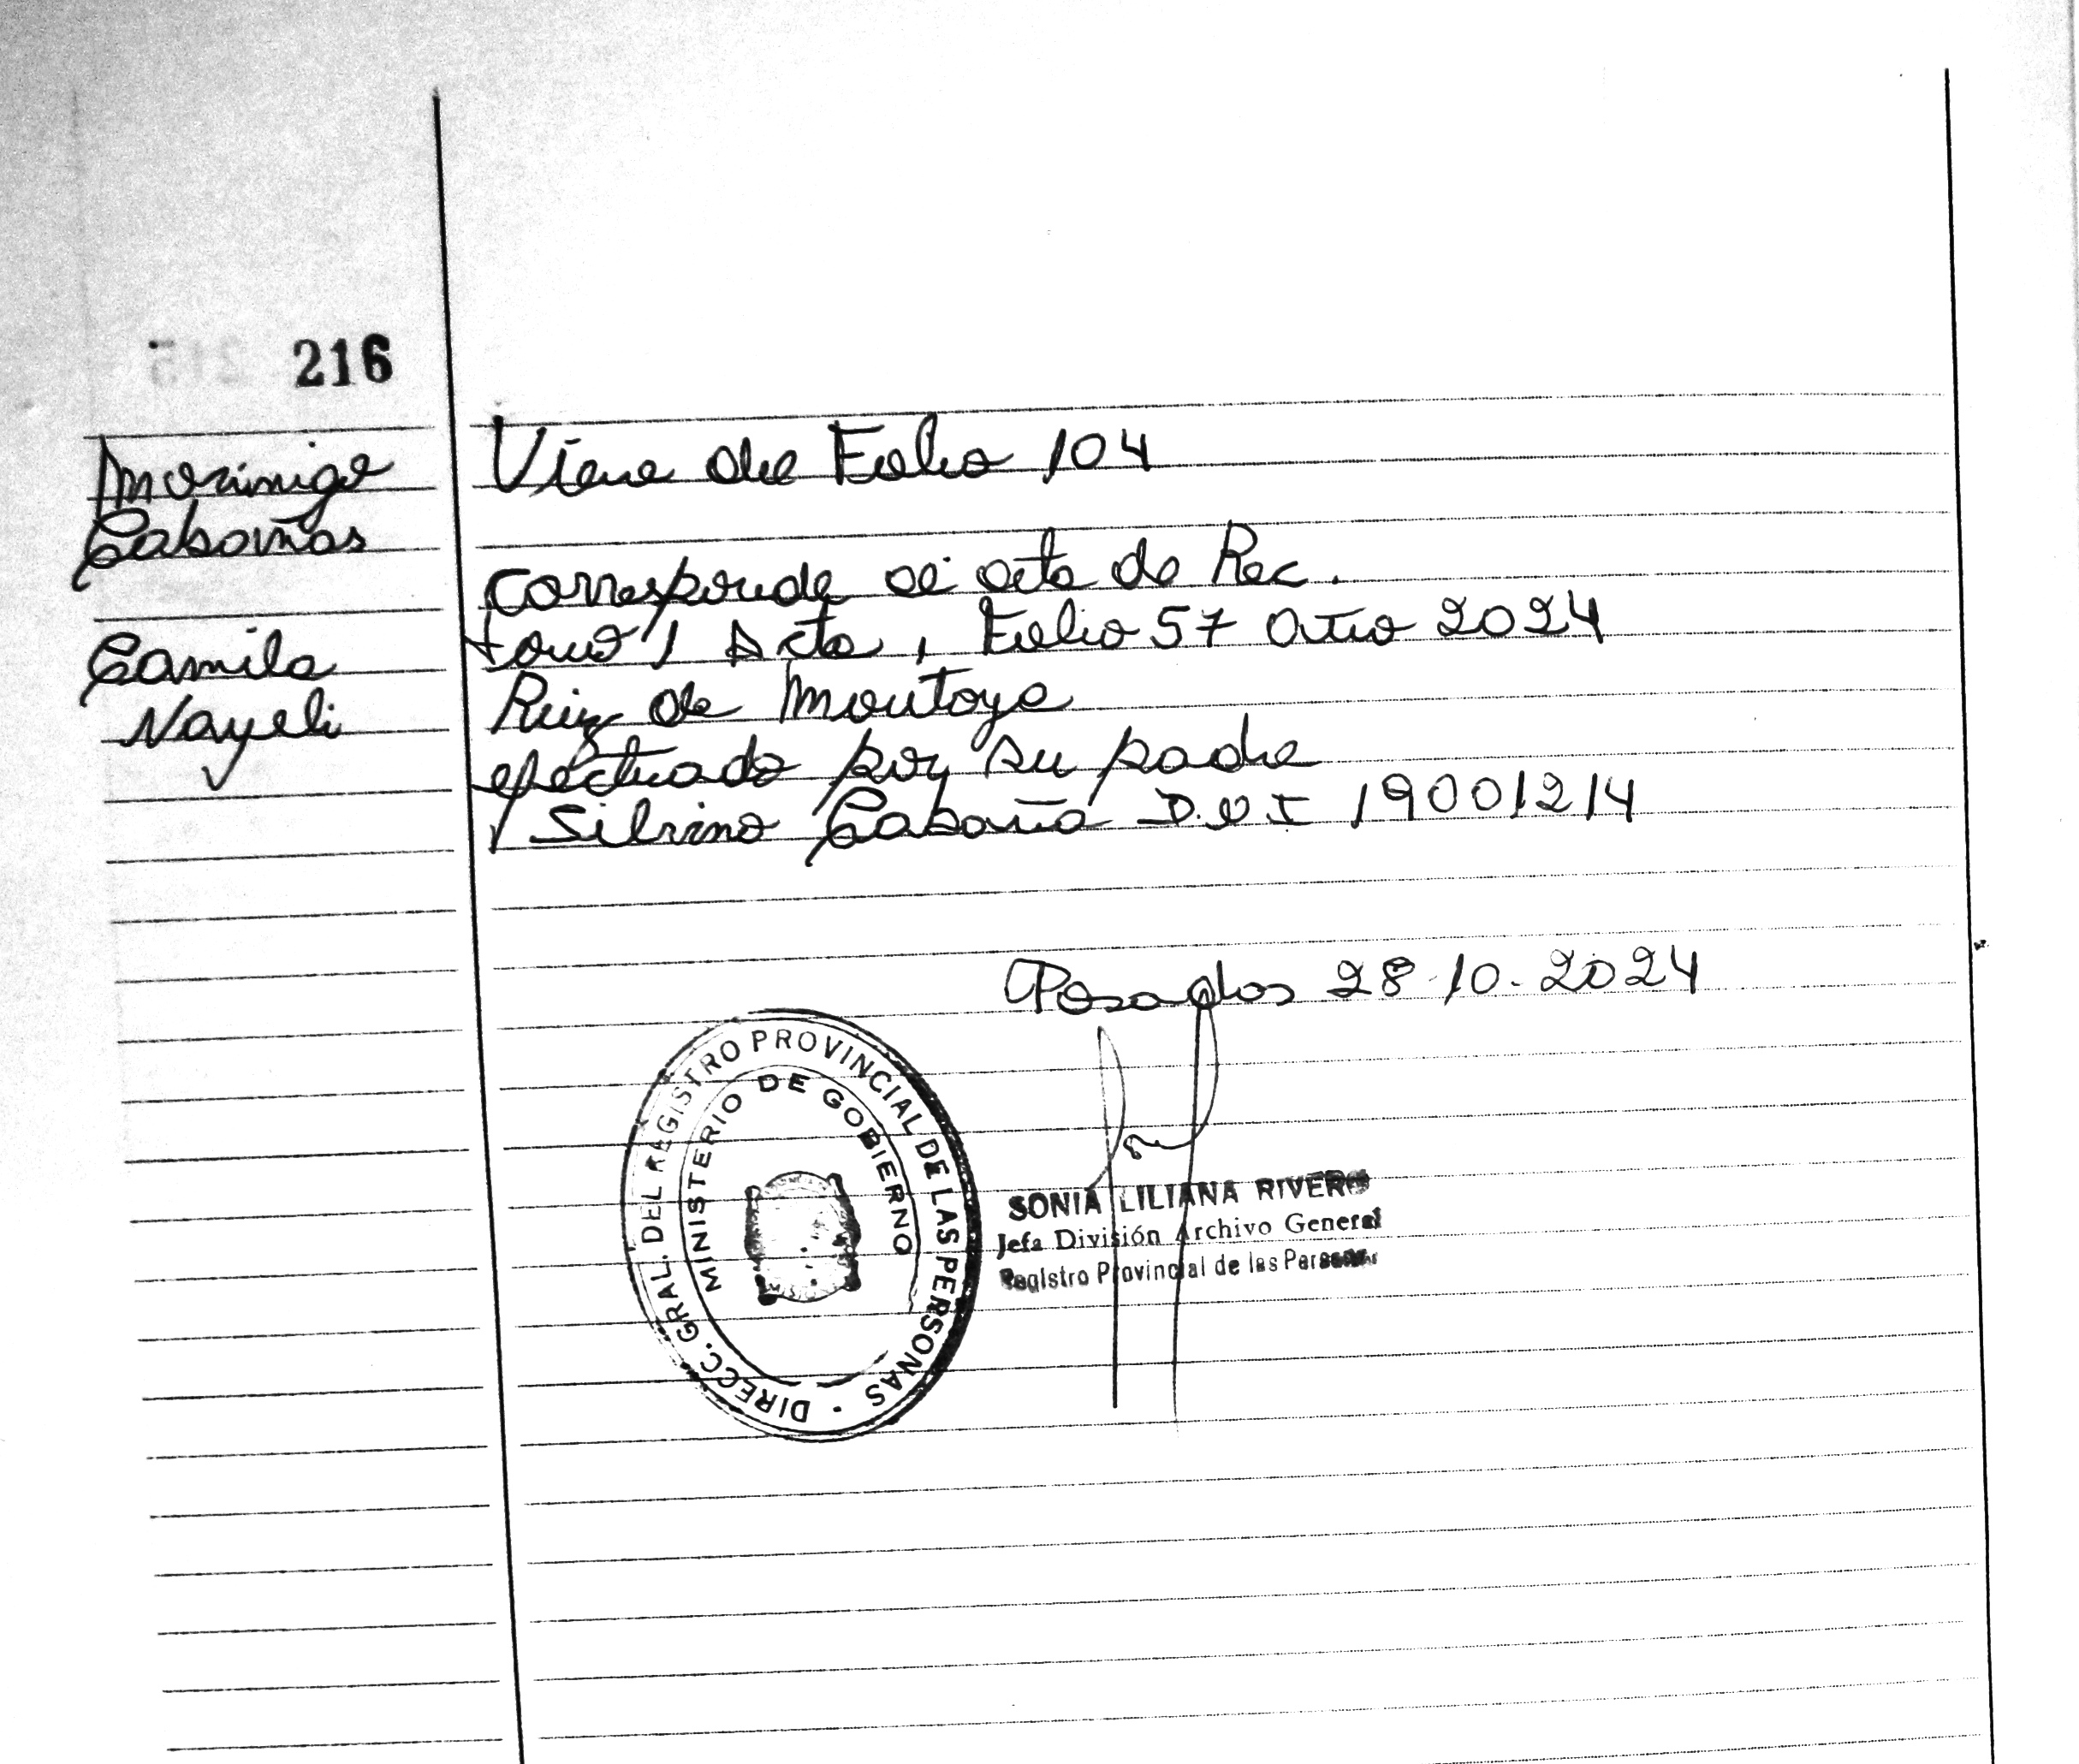 216
Morinigo
Cabañas
Camila
Nayeli
Viene de Folio 104
corresponde al acta de Rec.
tomo 1 Acta 1 Folio 57 año 2024
Ruiz de Montoya
efectuado por su padre
Silvino Cabaña D.N.I 19001214
Posadas 28-10-2024
DIRECC. GRAL. DEL REGISTRO PROVINCIAL DE LAS PERSONAS
MINISTERIO DE GOBIERNO
SONIA LILIANA RIVERO
Jefa División Archivo General
Registro Provincial de las Personas